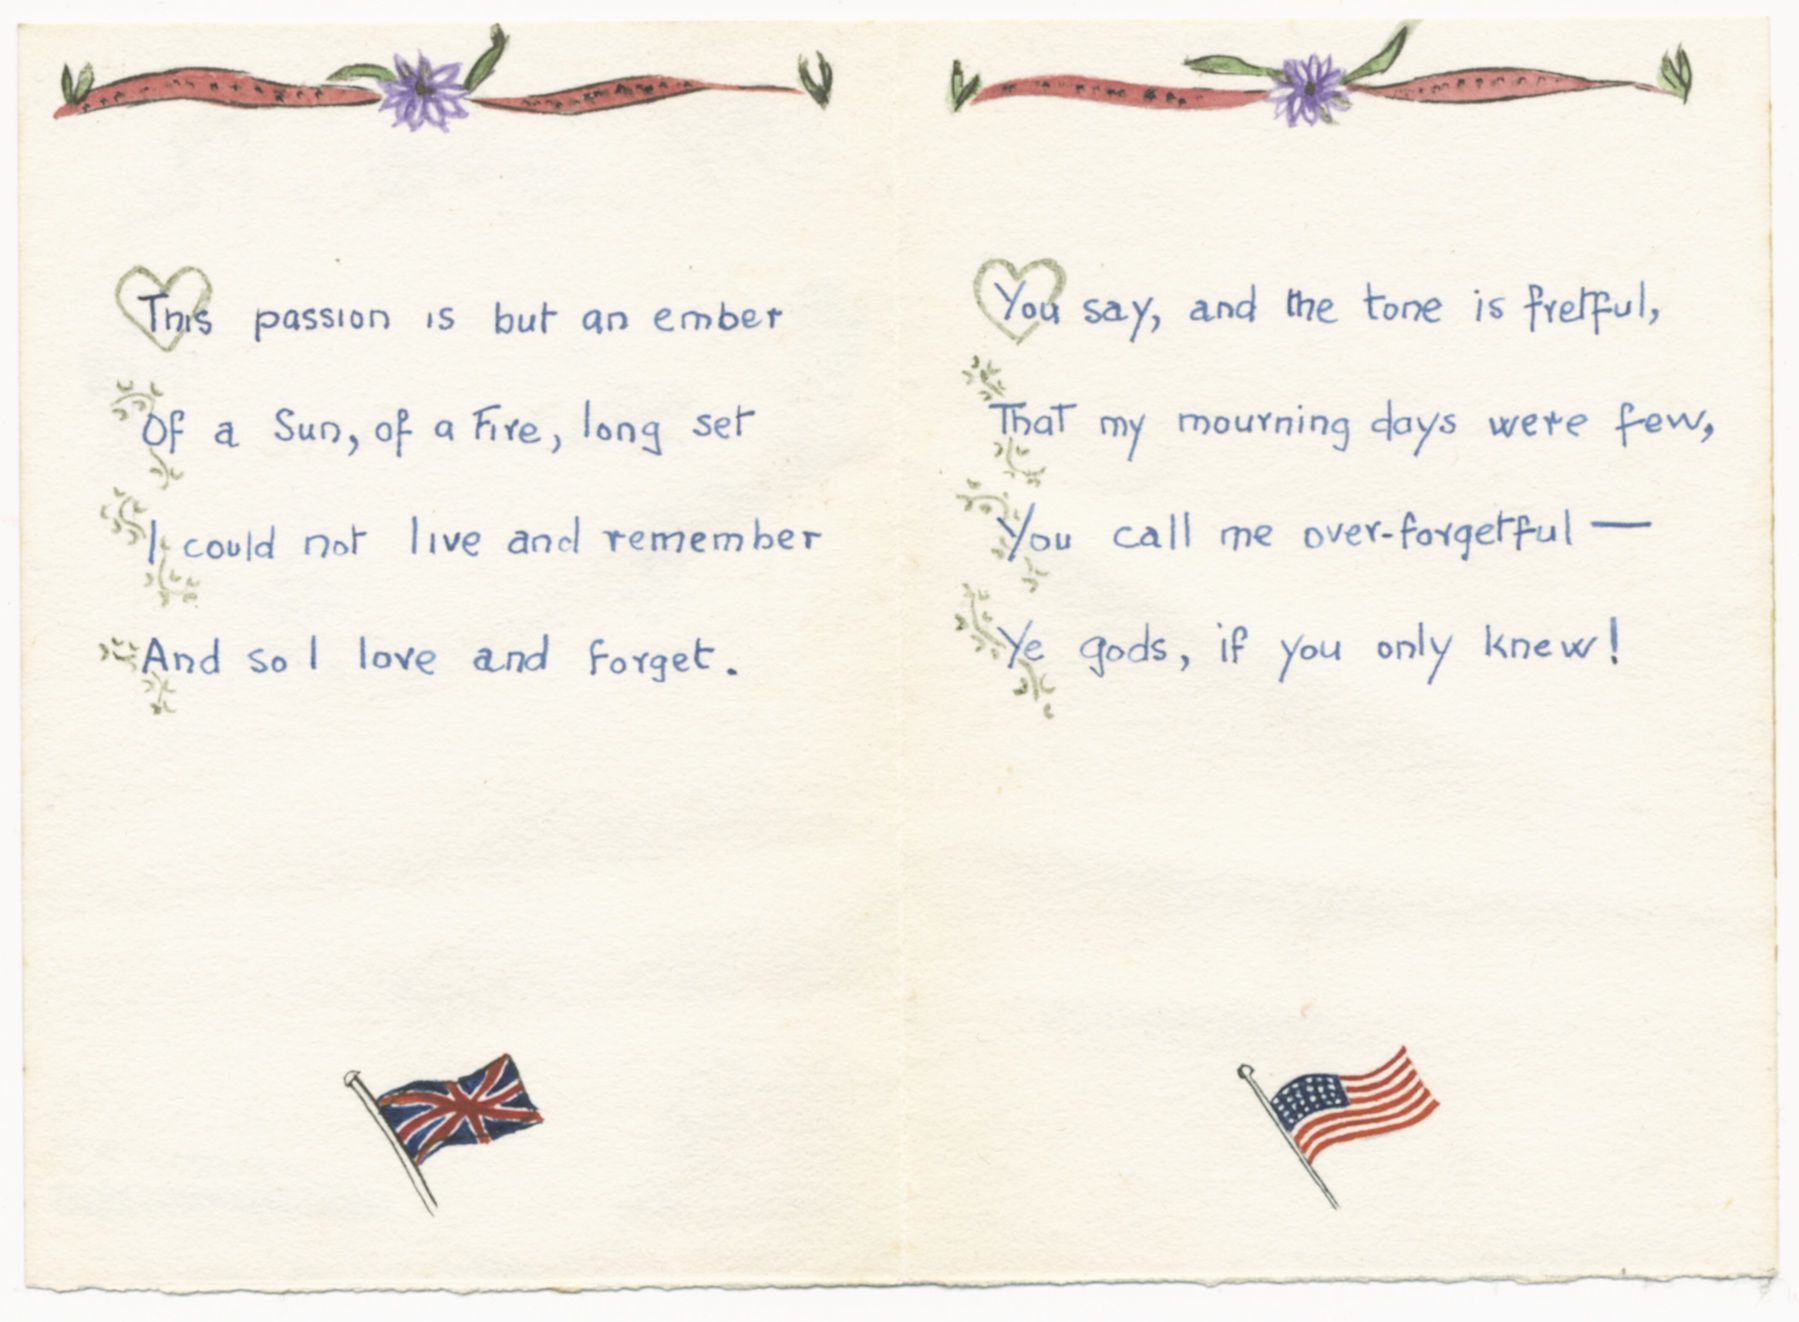 This passion is but an ember
Of a Sun, of a Fire, long set
I could not live and remember
And so I love and forget.
You say, and the tone is fretful,
That my mourning days were few,
You call me over-forgetful —
Ye gods, if you only knew!